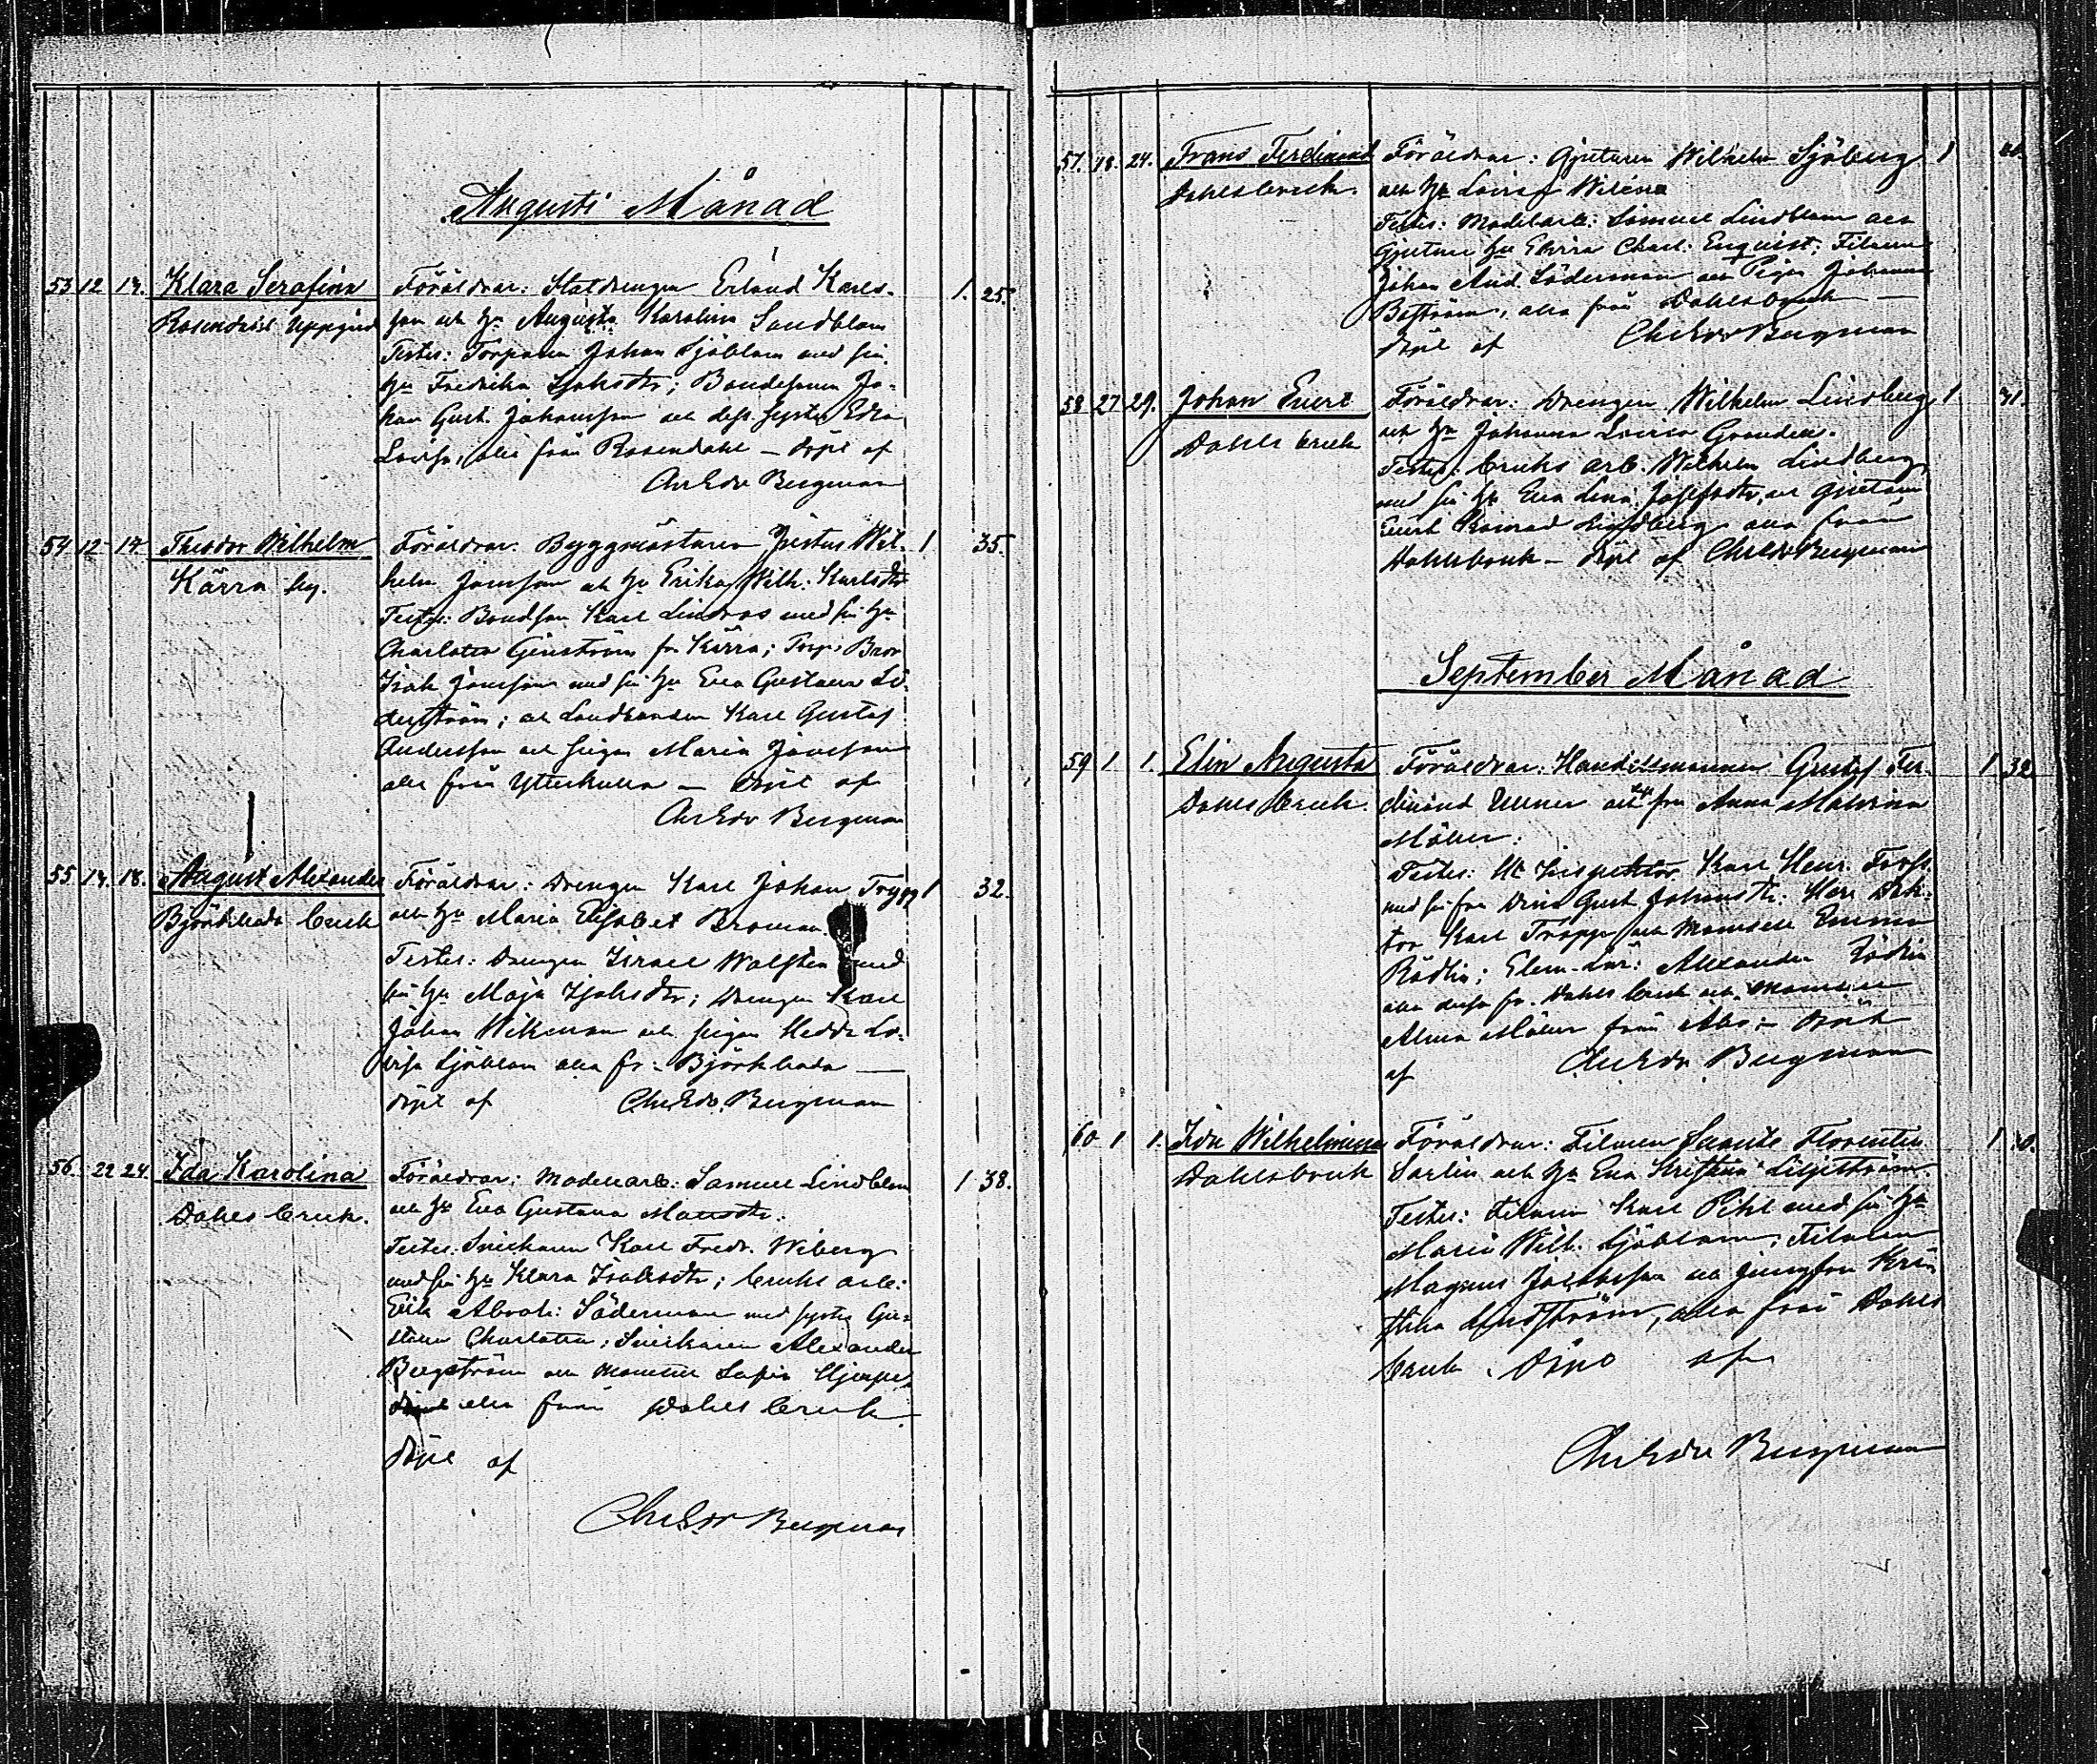 Augusti Månad
53 12 14. Klara Serafina Föräldrar: Statdrengen Erland Karls- 1. 25.
Rosendahl Uppgård son och hu Augusta Karolina Sandblom
Testes: Torparen Johan Sjöblom med sin
hu Fredrika Isaksdtr; Bondesonen Jo-
han Gust. Johansson och dess syster Edla
Lovisa, alla från Rosendahl – döpt af
Chr Edv Bergman
54 12 14 Theodor Wilhelm Föräldrar: Byggmästaren Justus Wil- 1 35.
Kärra helm Jansson och hu Erika Wilh: Karlsdtr
Testes: Bondson Karl Lindros med sin hu
Charlotta Genström fr Kärra; Torp: Bror
Isak Jansson med sin hu Eva Gustava Sö-
derström; och Landbonden Karl Gustaf
Andersson och pigan Maria Jansson
alla från Ytterkulla – döpt af
Chr Edv Bergman
55 14. 18. August Alexander Föräldrar: Drengen Karl Johan Trygg 1 32.
Björkboda bruk och hu Maria Elisabet Broman.
Testes: Drengen Israel Walsten med
sin hu Maja Isaksdtr; Drengen Karl
Johan Wikman och pigan Hedda Lo-
visa Sjöblom alla fr: Björkboda
döpt af Chr Edv. Bergman
56. 22 24. Ida Karolina Föräldrar: Modellarb: Samuel Lindblom 1 38.
Dahls bruk. och hu Eva Gustava Mansdtr.
Testes: Snickaren Karl Fredr. Wiberg
med sin hu Klara Isaksdtr; bruks arb:
Erik Abrah: Söderman med syster Gu-
stava Charlotta; Snickaren Alexander
Bergström och Mamsell Sofia Hjerpe,
alla från Dahls bruk
Döpt af
Chr Edv Bergman
57. 18. 24. Frans Ferdinand Föräldrar: Gjutaren Wilhelm Sjöberg 1
Dahlsbruk. och hu Lovisa Wiléna
Testes: Modellarb: Samuel Lindblom och
Gjutare hu Elvira Charl: Enqvist; Filaren
Johan And. Söderman och Pigan Johanna
Boström, alla från Dahlsbruk
döpt af Chr Edv Bergman
58 27 29. Johan Evert Föräldrar: Drengen Wilhelm Lindberg 1 41.
Dahls bruk och hu Johanna Lovisa Grandell.
Testes: bruks arb. Wilhelm Lindberg
med sin hu Eva Lena Josefsdtr, och Gjutaren
Evert Konrad Lindberg alla från
Dahlsbruk – döpt af Chr Edv Bergman
September Månad
59 1 1. Elin Augusta Föräldrar: Handelsmannen Gustaf Fer- 1 32
Dahls bruk. dinand Ullner och fru Anna Malvina
Möller.
Testes: Hr Inspektor Karl Henr. Forss
med sin fru Gust. Johansdtr: Herr Dok-
tor Karl Trapp och Mamsell Emma
Rådlin; Elem-Lär: Alexander
alla dessa fr. Dahls bruk och Mamsell
Alma Möller från Åbo – Döpt
af Chr Edv Bergman
60. 1 1. Ida Wilhelmina Föräldrar: Filaren Florentin 1
Dahlsbruk Sarlin och hu Eva Kristina Liljeström.
Testes: Filaren Karl Pihl med sin hu
Maria Wilh. Sjöblom; Filaren
Magnus Jakobsson och jungfru Kri-
stina Lindström, alla från Dahls
bruk. Döpt af
Chr Edv Bergman